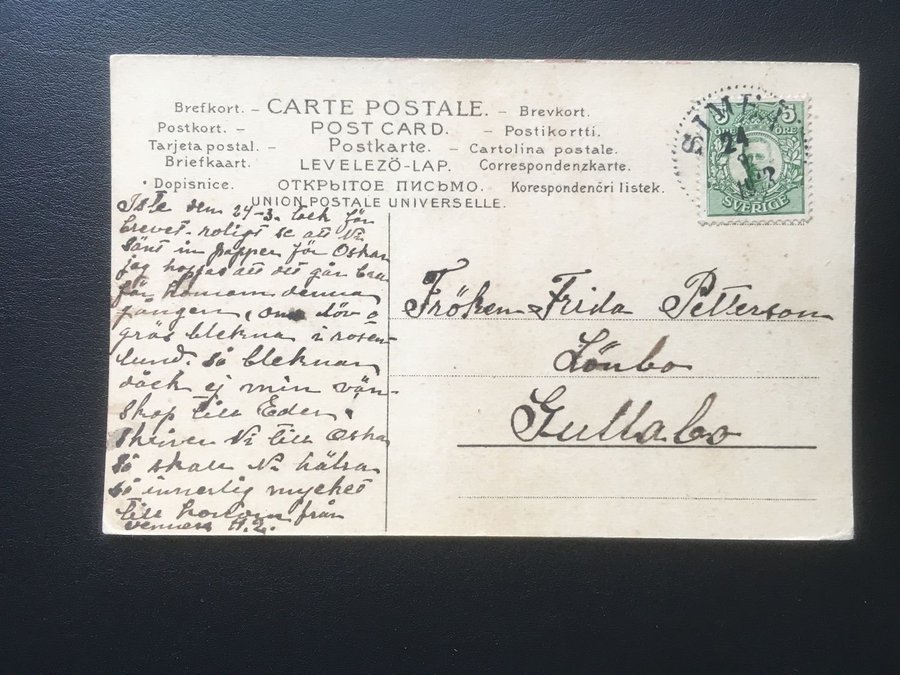 Brefkort. – CARTE POSTALE. – Brevkort.
Postkort. – POST CARD. – Postikortti.
Tarjeta postal. – Postkarte. – Cartolina postale.
Briefkaart. LEVELEZÖ-LAP. Correspondenzkarte.
Dopisnice. ОТКРЫТОЕ ПИСЬМО. Korespondenčri listek.
UNION POSTALE UNIVERSELLE.
5 5
ÖRE ÖRE
SVERIGE
24
den 24-3. tack för
brevet. roligt se att Ni
sänt in papper för Oskar
jag hoppas att det går bra
för honom denna
gången, om löv o
gräs blekna i rosen-
lund. så bleknar
dock ej min vän-
skap till Eder.
skriver Ni till Oskar
så skall Ni hälsa
så innerlig mycket
till honom från
vennen H.L.
Fröken Frida Petterson
Lönbo
Gullabo